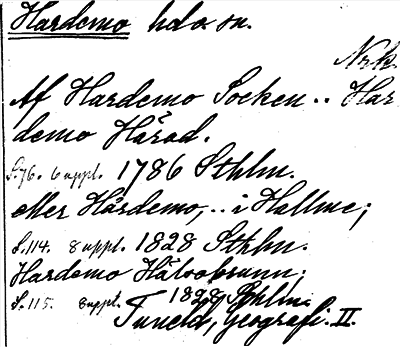 Hardemo hd o sn.
Nrk.
Af Hardemo Socken .. Har
demo Härad.
S. 76. 6 uppl. 1786 Sthlm.
eller Hårdemo, .. i Hallme;
S. 114. 8 uppl. 1828 Sthlm.
Hardemo Hälsobrunn;
S. 115. 8 uppl. 1828 Sthlm.
Tuneld, Geografi. II.